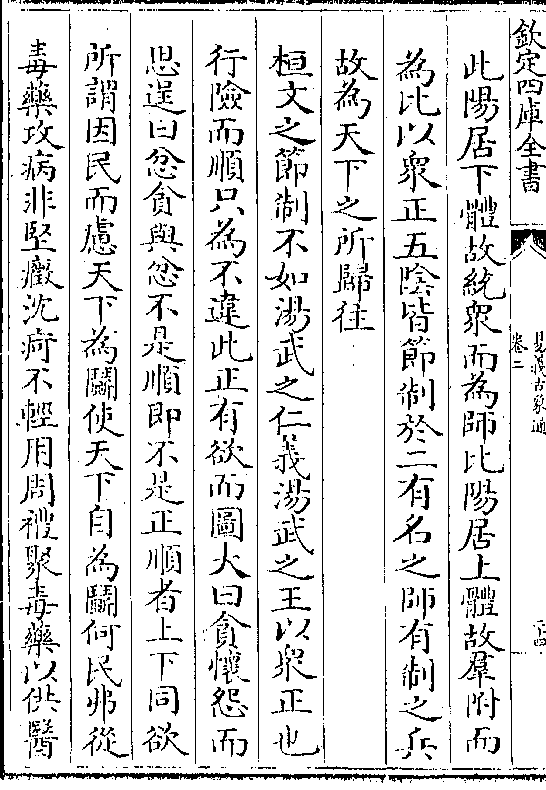 欽定四庫全書
易義古象通
卷二
二十四
此陽居下體故統衆而為師比陽居上體故羣附而
為比以衆正五陰皆節制於二有名之師有制之兵
故為天下之所歸往
桓文之節制不如湯武之仁義湯武之王以衆正也
行險而順只為不違此正有欲而圖大曰貪懷怨而
思逞曰忿貪與忿不是順即不是正順者上下同欲
所謂因民而慮天下為鬭使天下自為鬭何民弗從
毒藥攻病非堅癥沈疴不輕用周禮聚毒藥以供醫